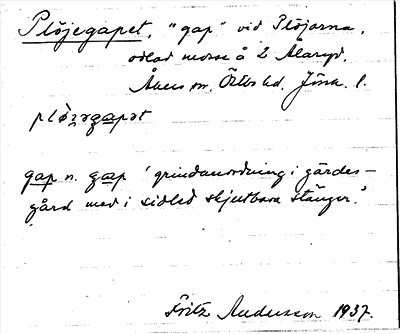 Plöjegapet, "gap" vid Plöjorna,
odlad mosse å 2 Älaryd,
Åkers sn, Östbo hd, Jönk. l.
gap n. gap 'grindanordning i gärdes-
gård med i sidled skjutbara stänger.'
Fritz Andersson 1937.